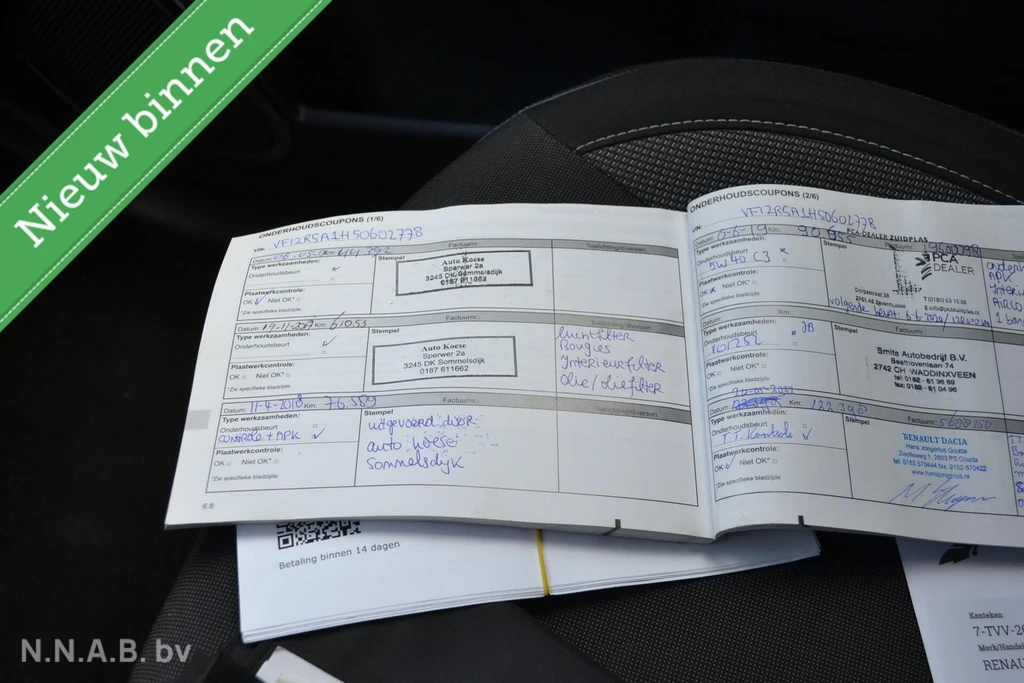 Nieuw binnen
ONDERHOUDSCOUPONS (1/6)
VIN: VF12R5A1H50602778
Datum: Km: Factuurnr.: Toelichting/diversen
Type werkzaamheden:
Onderhoudsbeurt
Stempel
Plaatwerkcontrole:
OK Niet OK*
*Zie specifieke bladzijde
Auto Koese
Sperwer 2a
3245 DK Sommelsdijk
0187 611662
Datum: 14-11-2017 Km: 61053 Factuurnr.: Toelichting/diversen
Type werkzaamheden:
Onderhoudsbeurt
Stempel
Plaatwerkcontrole:
OK Niet OK*
*Zie specifieke bladzijde
Auto Koese
Sperwer 2a
3245 DK Sommelsdijk
0187 611662
luchtfilter
Bougies
Interieurfilter
olie/oliefilter
Datum: 11-4-2018 Km: 76.589 Factuurnr.: Toelichting/diversen
Type werkzaamheden:
Onderhoudsbeurt
controle + APK
Stempel
Plaatwerkcontrole:
OK Niet OK*
*Zie specifieke bladzijde
uitgevoerd door
auto koese
sommelsdijk
6.8
ONDERHOUDSCOUPONS (2/6)
VIN: VF12R5A1H50602778
Datum: 6-6-19 Km:
Type werkzaamheden:
Onderhoudsbeurt
5W40 C3
Stempel
PCA DEALER ZUIDPLAS
PCA
DEALER
Plaatwerkcontrole:
OK Niet OK*
*Zie specifieke bladzijde
Datum: Km: Factuurnr.:
Type werkzaamheden:
Onderhoudsbeurt
Stempel
Plaatwerkcontrole:
OK Niet OK*
*Zie specifieke bladzijde
Smits Autobedrijf B.V.
Beethovenlaan 74
2742 CH WADDINXVEEN
tel: 0182 - 61 36 69
fax: 0182 - 61 04 96
Datum: Km: Factuurnr.:
Type werkzaamheden:
Onderhoudsbeurt
T.T. Kontrole
Stempel
Plaatwerkcontrole:
OK Niet OK*
*Zie specifieke bladzijde
RENAULT DACIA
Hans Jongerius Gouda
Zwolleweg 1, 2803 PS Gouda
tel. 0182-570444 fax: 0182-570422
www.hansjongerius.nl
Betaling binnen 14 dagen
Kenteken
7-TVV-2
Merk/Handel
RENAU
N.N.A.B. bv